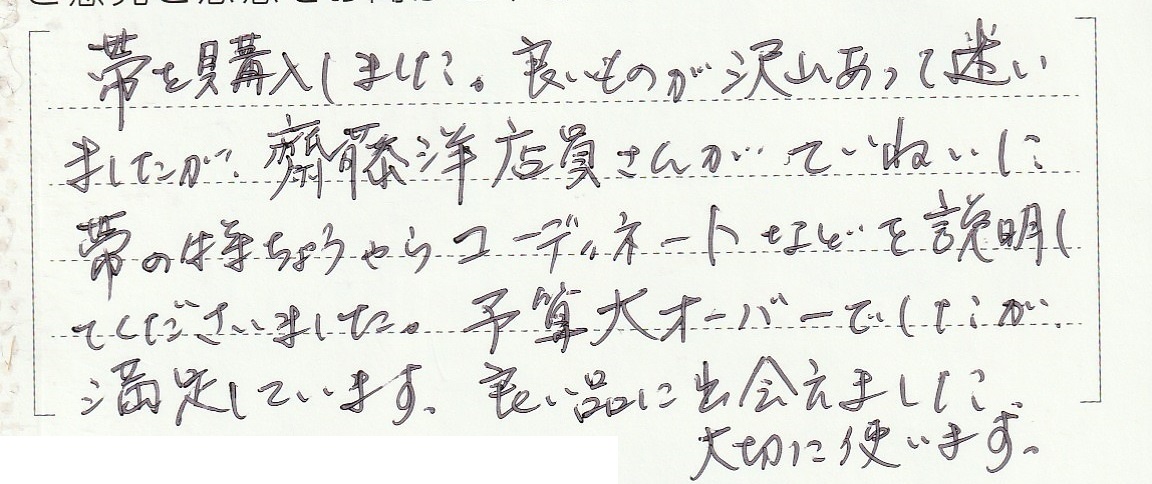 帯を購入しました。良いものが沢山あって迷い
ましたが、齋藤洋店員さんが ていねいに
帯の特ちょうやらコーディネートなどを説明し
てくださいました。予算大オーバーでしたが、
満足しています。良い品に出会えました。
大切に使います。